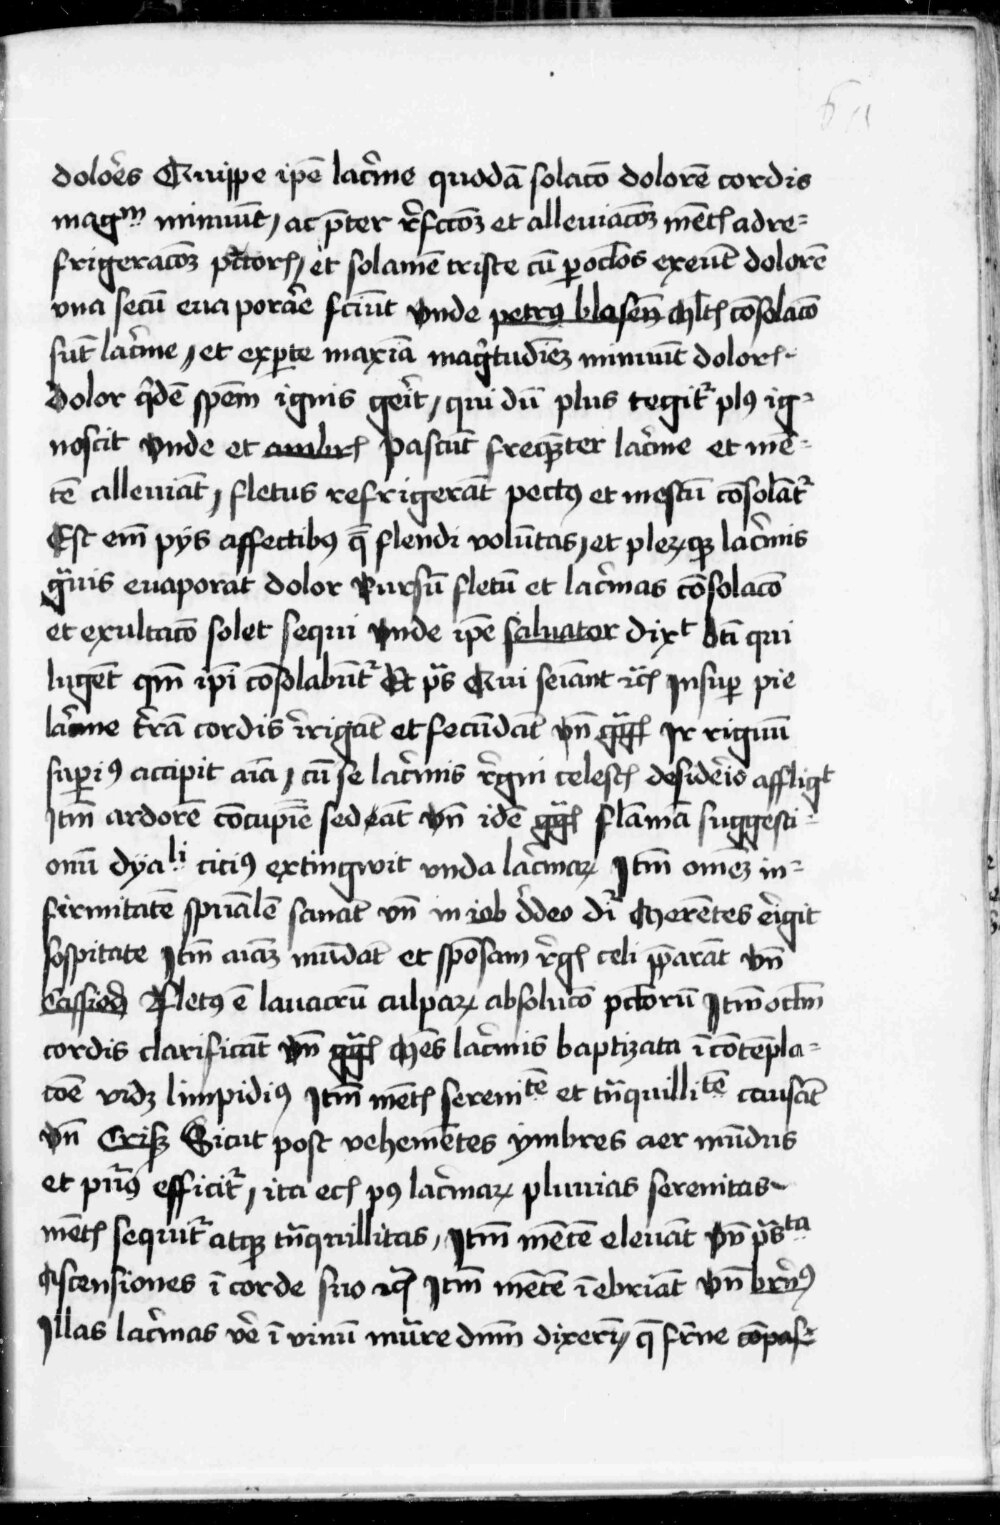 dolor̄es Quippe ip̄e lac̄rme quodā solac̄o dolorē cordis
magᵐ minuūt, ac p̄ter r̄fcc̄oꝫ et alleuiac̄oꝫ mēt̄ꝭ ad re⸗
frigerac̄oꝫ pc̄torꝭ, et solamē triste cū ꝑ oc̄los exeūt dolorē
vna secū euaporar̄e fciūt Vnde petrꝯ blesen̄ Mlt̄ꝭ cōsolac̄o
sūt lac̄rme, et experte maxīa mag̅tudīeꝫ minuūt dolorꝭ
dolor q̄dē spēm ignis ger̄it, qui dū plus tegit᷑ plꝯ ig⸗
noscit Vnde et ambrꝭ Pascūt freqn̄ter lac̄rme et mē⸗
tē alleuiāt, fletus refrigerāt pectꝯ et mestū cōsolāt᷑
Est em̄ pijs affectibꝯ q̄ flendi volūtas, et pleꝝqꝫ lac̄rmis
g̅uis euaporat dolor Rursū fletū et lac̄rmas cōsolac̄o
et exultac̄o solet sequi Vnde ip̄e saluator dixᵗ bt̄i qui
lugēt qm̄ ip̄i cōsolabūt᷑ Et p̄s Qui seīant ⁊c̄ꝭ Insuꝑ pie
lac̄rme t̄rā cordis ir̄rigāt et fecūdāt Vn̄ g̅gꝭ Irriguū
suꝑiꝯ accipit aīa, cū se lac̄rmis r̄gni celestꝭ desider̄io affligᵗ
Itm̄ ardorē cōcupīē sedeāt Vn̄ idē g̅gꝭ flāmā suggesti⸗
onū dyaˡⁱ citiꝯ extingwit vnda lac̄rmaꝝ Itm̄ omēꝫ in⸗
firmitatē spūalē sanāt vn̄ in iob d̄ deo dr̄ Merētes er̄igit
sospitate Itm̄ aīaꝫ mūdāt et spōsam r̄gꝭ celi p̄parāt Vn̄
Cassiod̄ Fletꝯ ē lauacrū culpaꝝ absoluc̄o pc̄torū Itm̄ oc̄lm̄
cordis clarificāt Vn̄ g̅gꝭ Mēs lac̄rmis baptizata ī cōtēpla⸗
c̄oē vidꝫ limpidiꝯ Itm̄ mētꝭ sereniᵗᵉ̄ et tn̄quilliᵗᵉ̄ cauſāt
Vn̄ Crisꝫ Sicut post vehemētes ymbres aer mūdus
et pūrꝯ efficit᷑, ita ecꝭ pꝯ lac̄rmaꝝ pluuias serenitas
mētꝭ sequit᷑ atqꝫ tn̄quillitas, Itm̄ mētē eleuāt Vn̄ p̄sᵗᵃ
Ascensiones ī corde suo ⁊c̄ꝭ Itm̄ mētē īebriāt Vn̄ br̄n̄ꝯ
Illas lac̄rmas ve̅ ī vinū mūtare dnm̄ dixerī, q̄ fr̄ne cōpas⸗